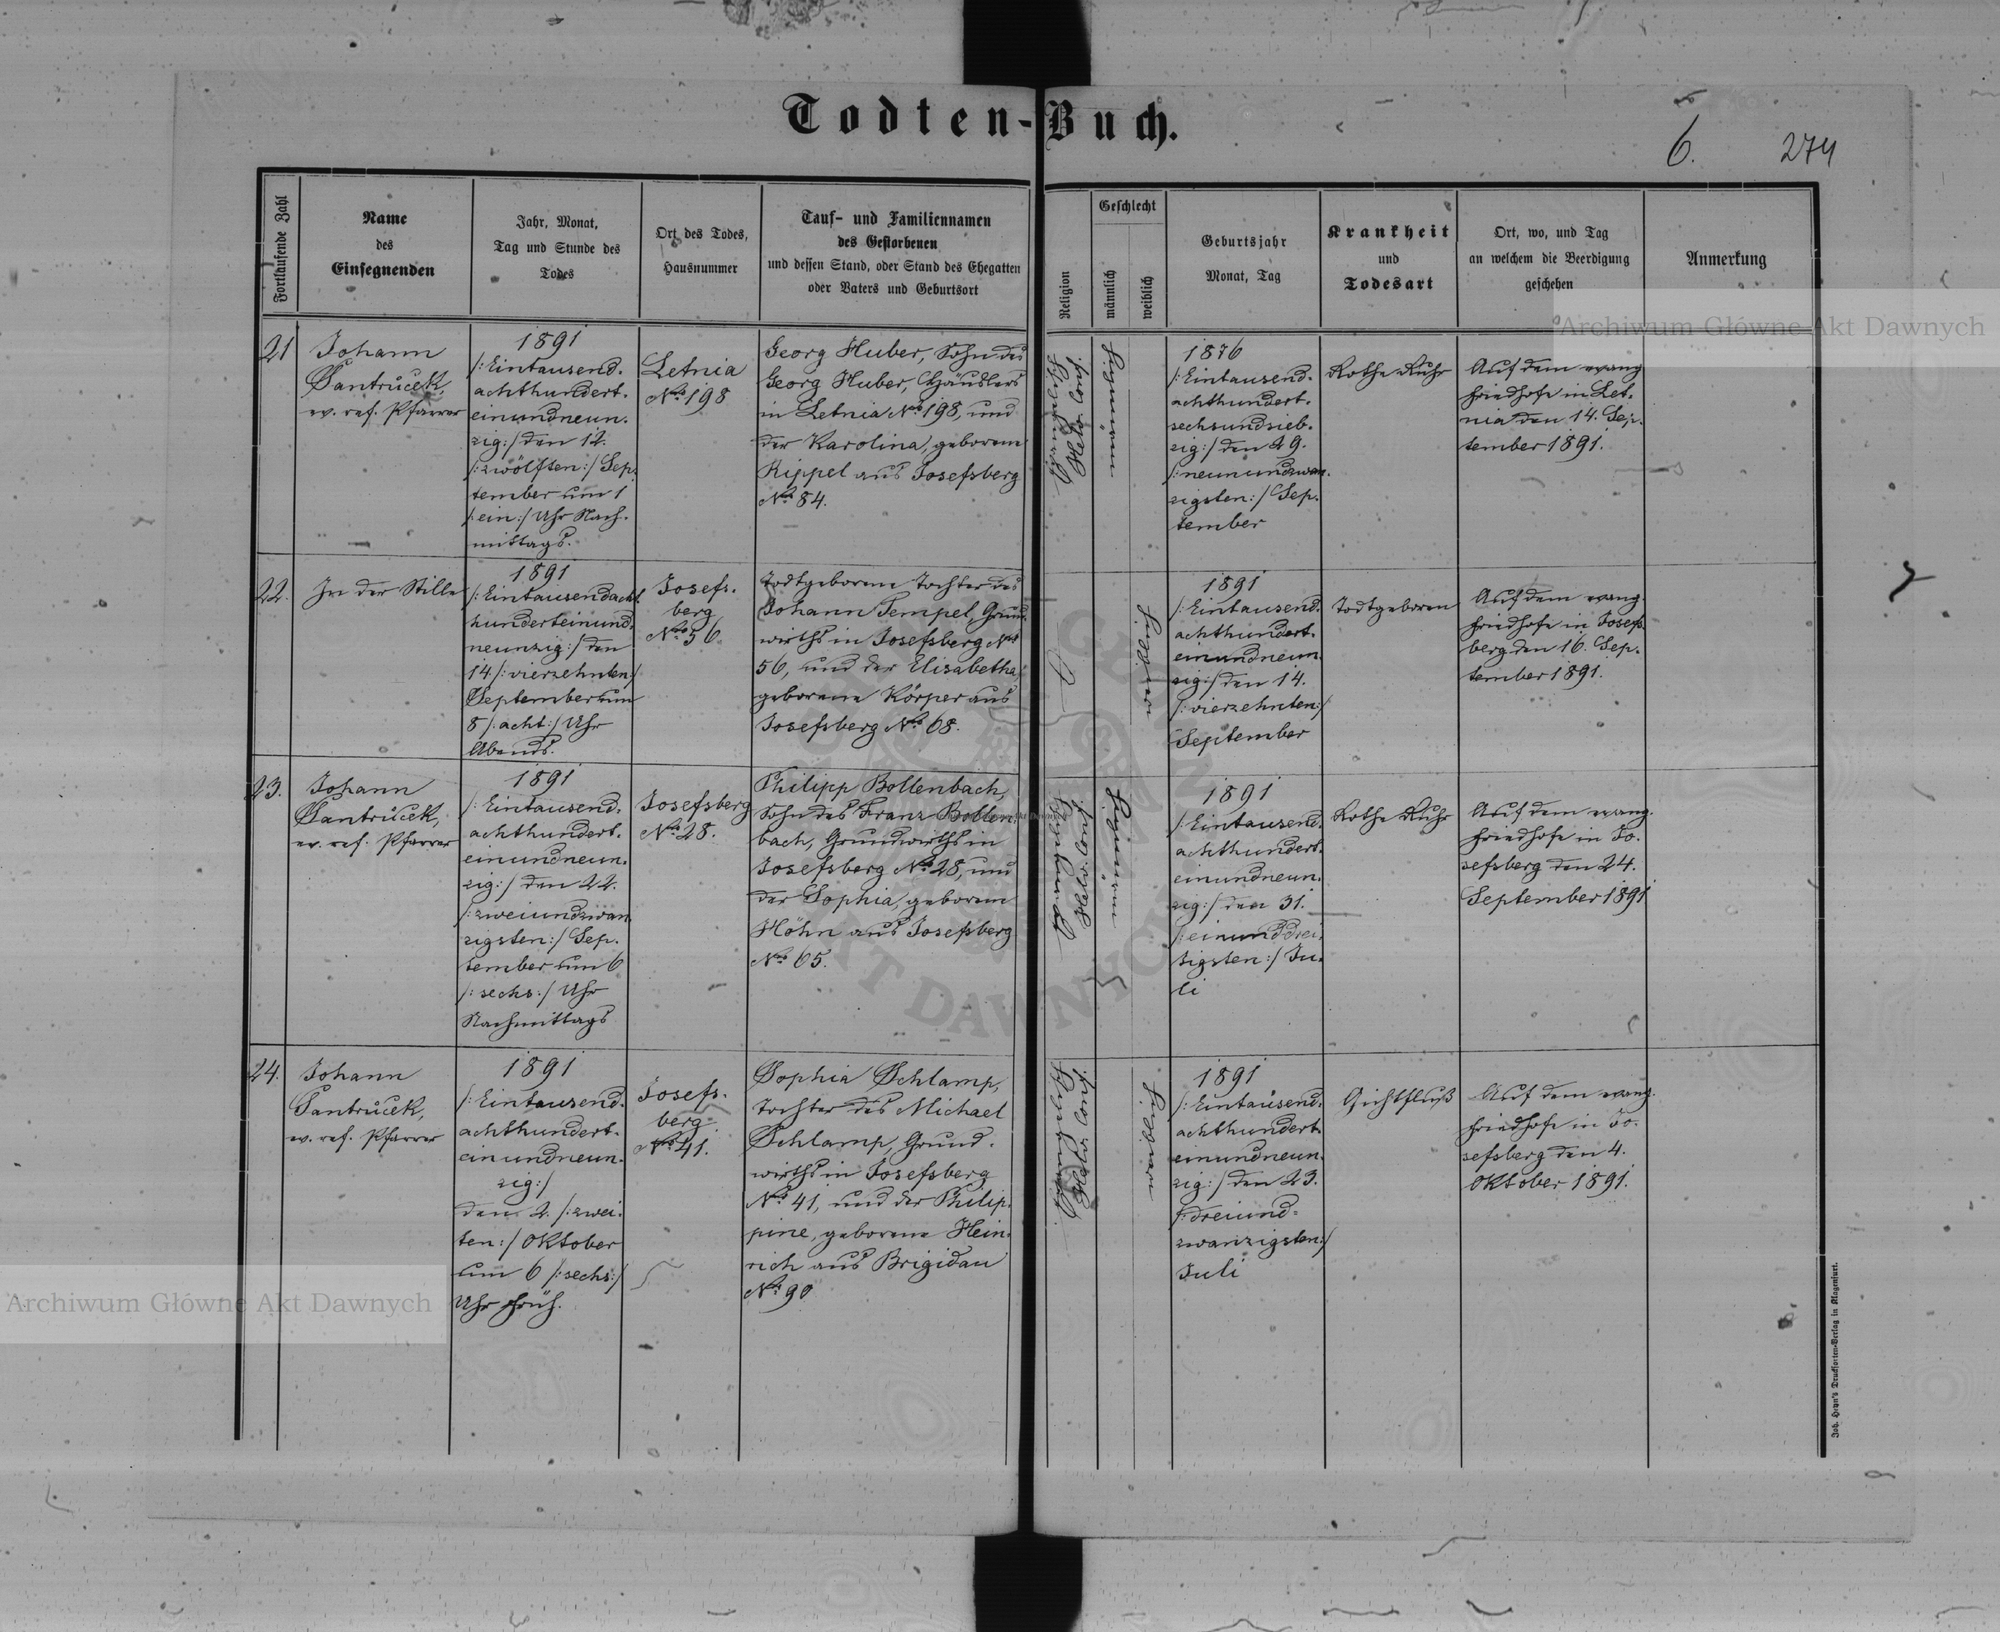 Todten-Buch.
6. 274
Fortlaufende Zahl
Name
des
Einsegnenden
Jahr, Monat,
Tag und Stunde des
Todes
Ort des Todes,
Hausnummer
Tauf- und Familiennamen
des Gestorbenen
und dessen Stand, oder Stand des Ehegatten
oder Vaters und Geburtsort
Religion
Geschlecht
männlich
weiblich
Geburtsjahr
Monat, Tag
Krankheit
und
Todesart
Ort, wo, und Tag
an welchem die Beerdigung
geschehen
Anmerkung
Archiwum Główne Akt Dawnych
21
Johann
Šantrůček,
ev. ref. Pfarrer
1891
/:Eintausend-
achthundert-
einundneun-
zig:/ den 12.
/:zwölften:/ Sep-
tember um 1
/:ein:/ Uhr Nach-
mittags.
Letnia
No. 198
Georg Huber, Sohn des
Georg Huber, Häuslers
in Letnia No. 198, und
der Karolina, geborene
Rippel aus Josefsberg
No. 84.
1876
/:Eintausend-
achthundert-
sechsundsieb-
zig:/ den 29.
/:neunundzwan-
zigsten:/ Sep-
tember
Rothe Ruhr
Auf dem evang.
Friedhofe in Let-
nia den 14. Sep-
tember 1891.
22.
In der Stille
1891
/:Eintausendacht
hunderteinund-
neunzig:/ den
14 /:vierzehnten:/
September um
8 /:acht:/ Uhr
Abends.
Josefs-
berg
No. 56.
Todtgeborene Tochter des
Johann Tempel, Grund-
wirths in Josefsberg No.
56, und der Elisabetha,
geborene Körper aus
Josefsberg No. 68.
1891
/:Eintausend-
achthundert-
einundneun-
zig:/ den 14.
/:vierzehnten:/
September
Todtgeboren
Auf dem evang.
Friedhofe in Josefs-
berg den 16. Sep-
tember 1891.
23.
Johann
Šantrůček,
ev. ref. Pfarrer
1891
/:Eintausend-
achthundert-
einundneun-
zig:/ den 22.
/:zweiundzwan-
zigsten:/ Sep-
tember um 6
/:sechs:/ Uhr
Nachmittags
Josefsberg
No. 28.
Philipp Bollenbach,
Sohn des Franz Bollen-
bach, Grundwirths in
Josefsberg No. 28, und
der Sophia, geborene
Höhn aus Josefsberg
No. 65.
1891
/:Eintausend-
achthundert-
einundneun-
zig:/ den 31.
/:einunddrei-
sigsten:/ Ju-
li
Rothe Ruhr
Auf dem evang.
Friedhofe in Jo-
sefsberg den 24.
September 1891
24.
Johann
Šantrůček,
ev. ref. Pfarrer
1891
/:Eintausend-
achthundert-
einundneun-
zig:/
den 2. /:zwei-
ten:/ Oktober
um 6 /:sechs:/
Uhr früh.
Josefs-
berg
No. 41.
Sophia Schlamp,
Tochter des Michael
Schlamp, Grund-
wirths in Josefsberg
No. 41, und der Philip-
pine, geborene Hein-
rich aus Brigidau
No. 90
1891
/:Eintausend-
achthundert-
einundneun-
zig:/ den 23.
/:dreiund-
zwanzigsten:/
Juli
Gichtfluß
Auf dem evang.
Friedhofe in Jo-
sefsberg den 4.
Oktober 1891.
Archiwum Główne Akt Dawnych
Joh. Heyn's Drucksorten-Verlag in Klagenfurt.